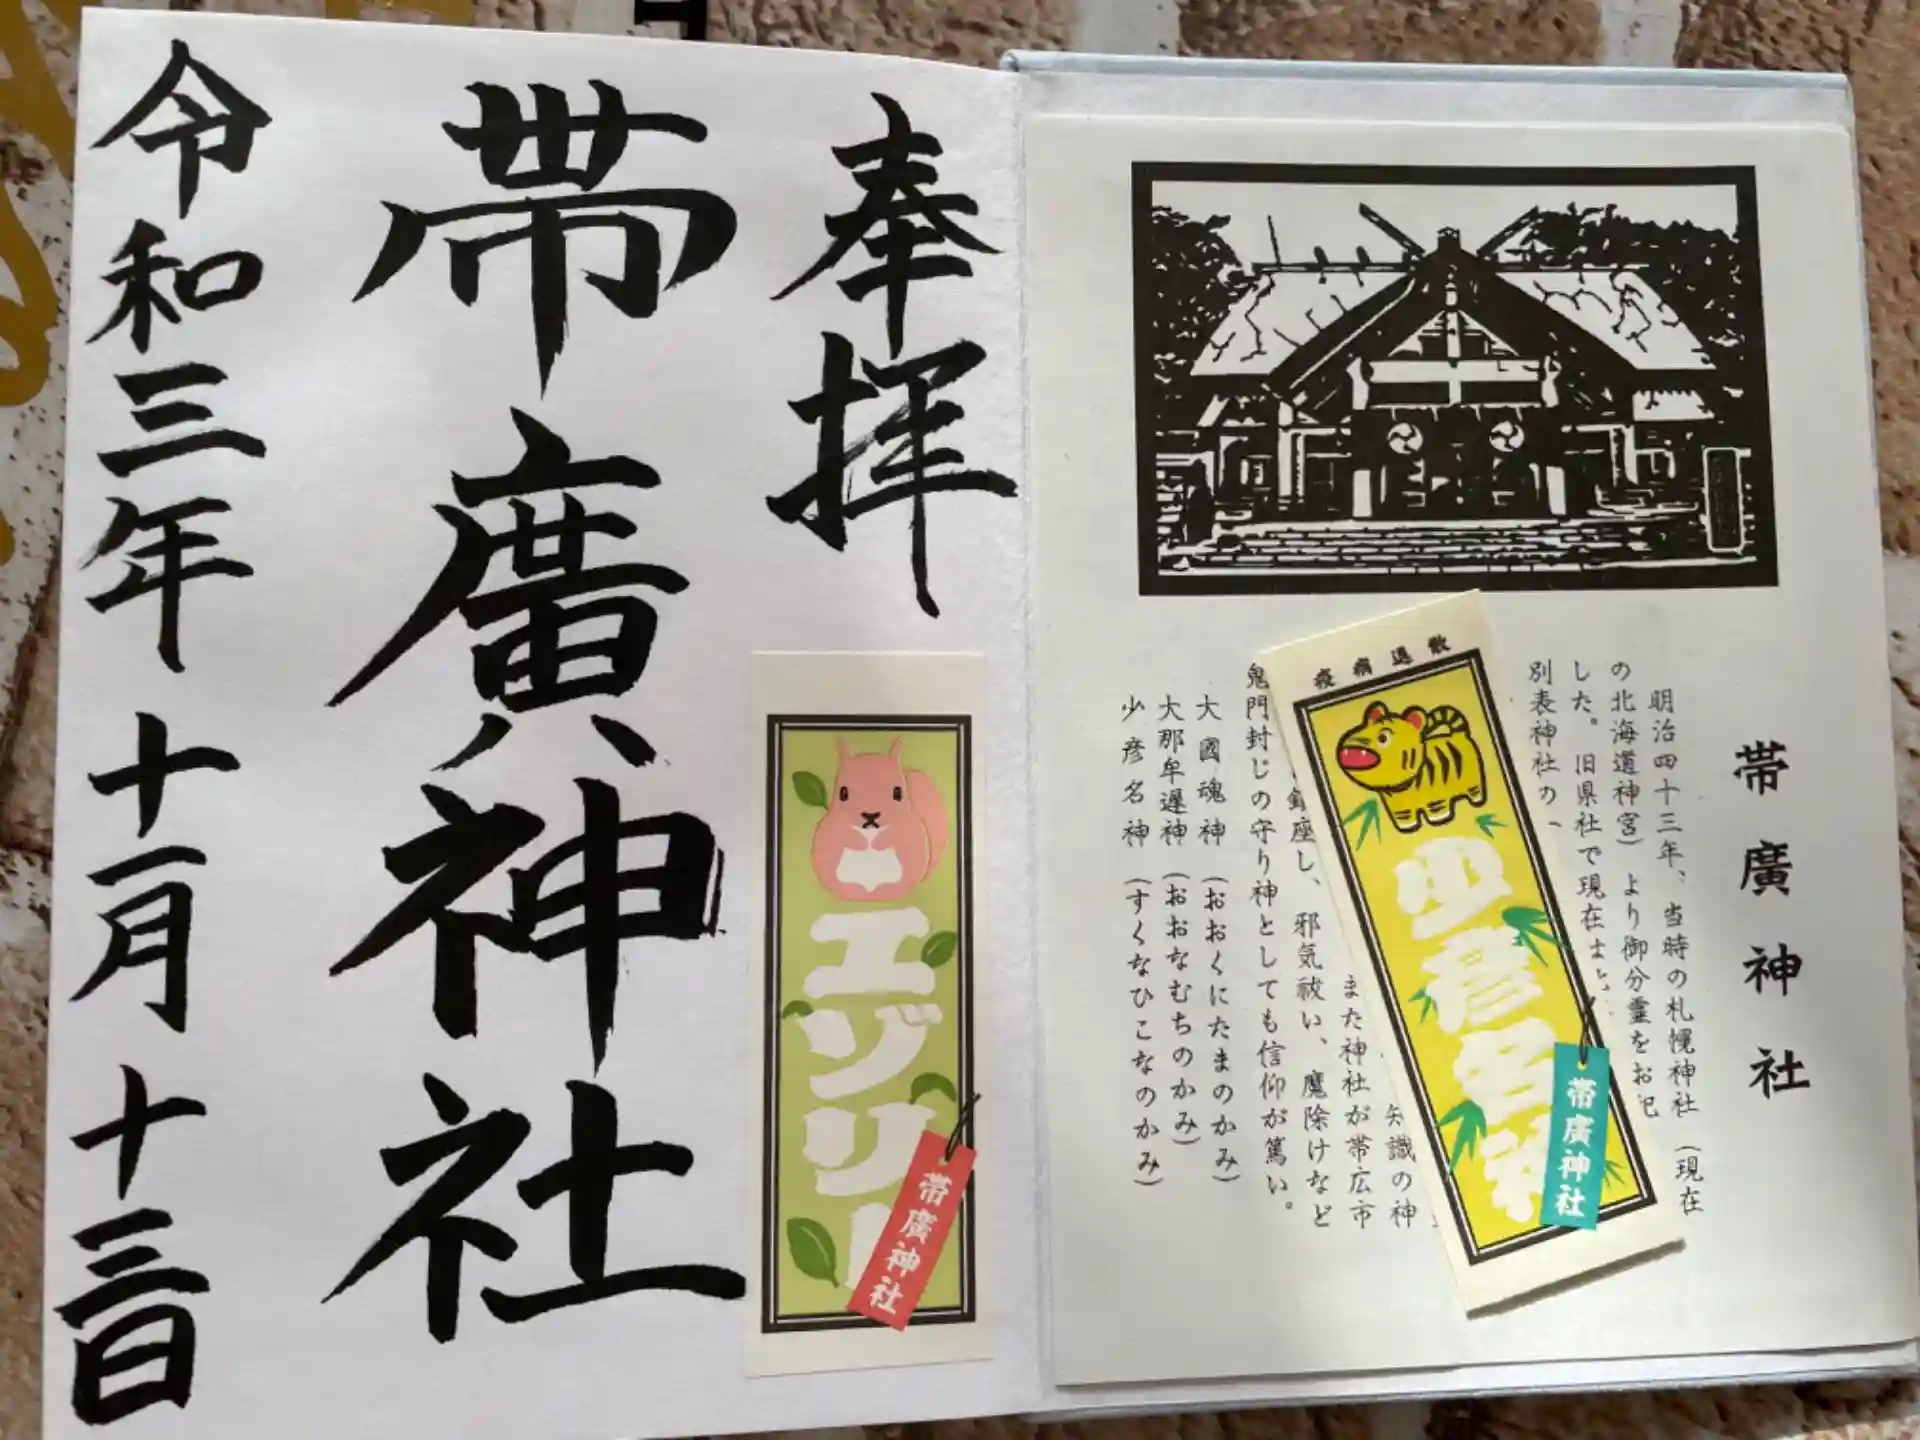 奉拝
帯廣神社
令和三年十一月十三日
エゾリ
帯廣神社
帯廣神社
明治四十三年、当時の札幌神社(現在
の北海道神宮)より御分霊をお祀
した。旧県社で現在は
別表神社の
知識の神
また神社が帯広市
座し、邪気祓い、魔除けなど
鬼門封じの守り神としても信仰が篤い。
大國魂神(おおくにたまのかみ)
大那牟遅神(おおなむちのかみ)
少彦名神(すくなひこなのかみ)
疫病退散
少彦名神
帯廣神社